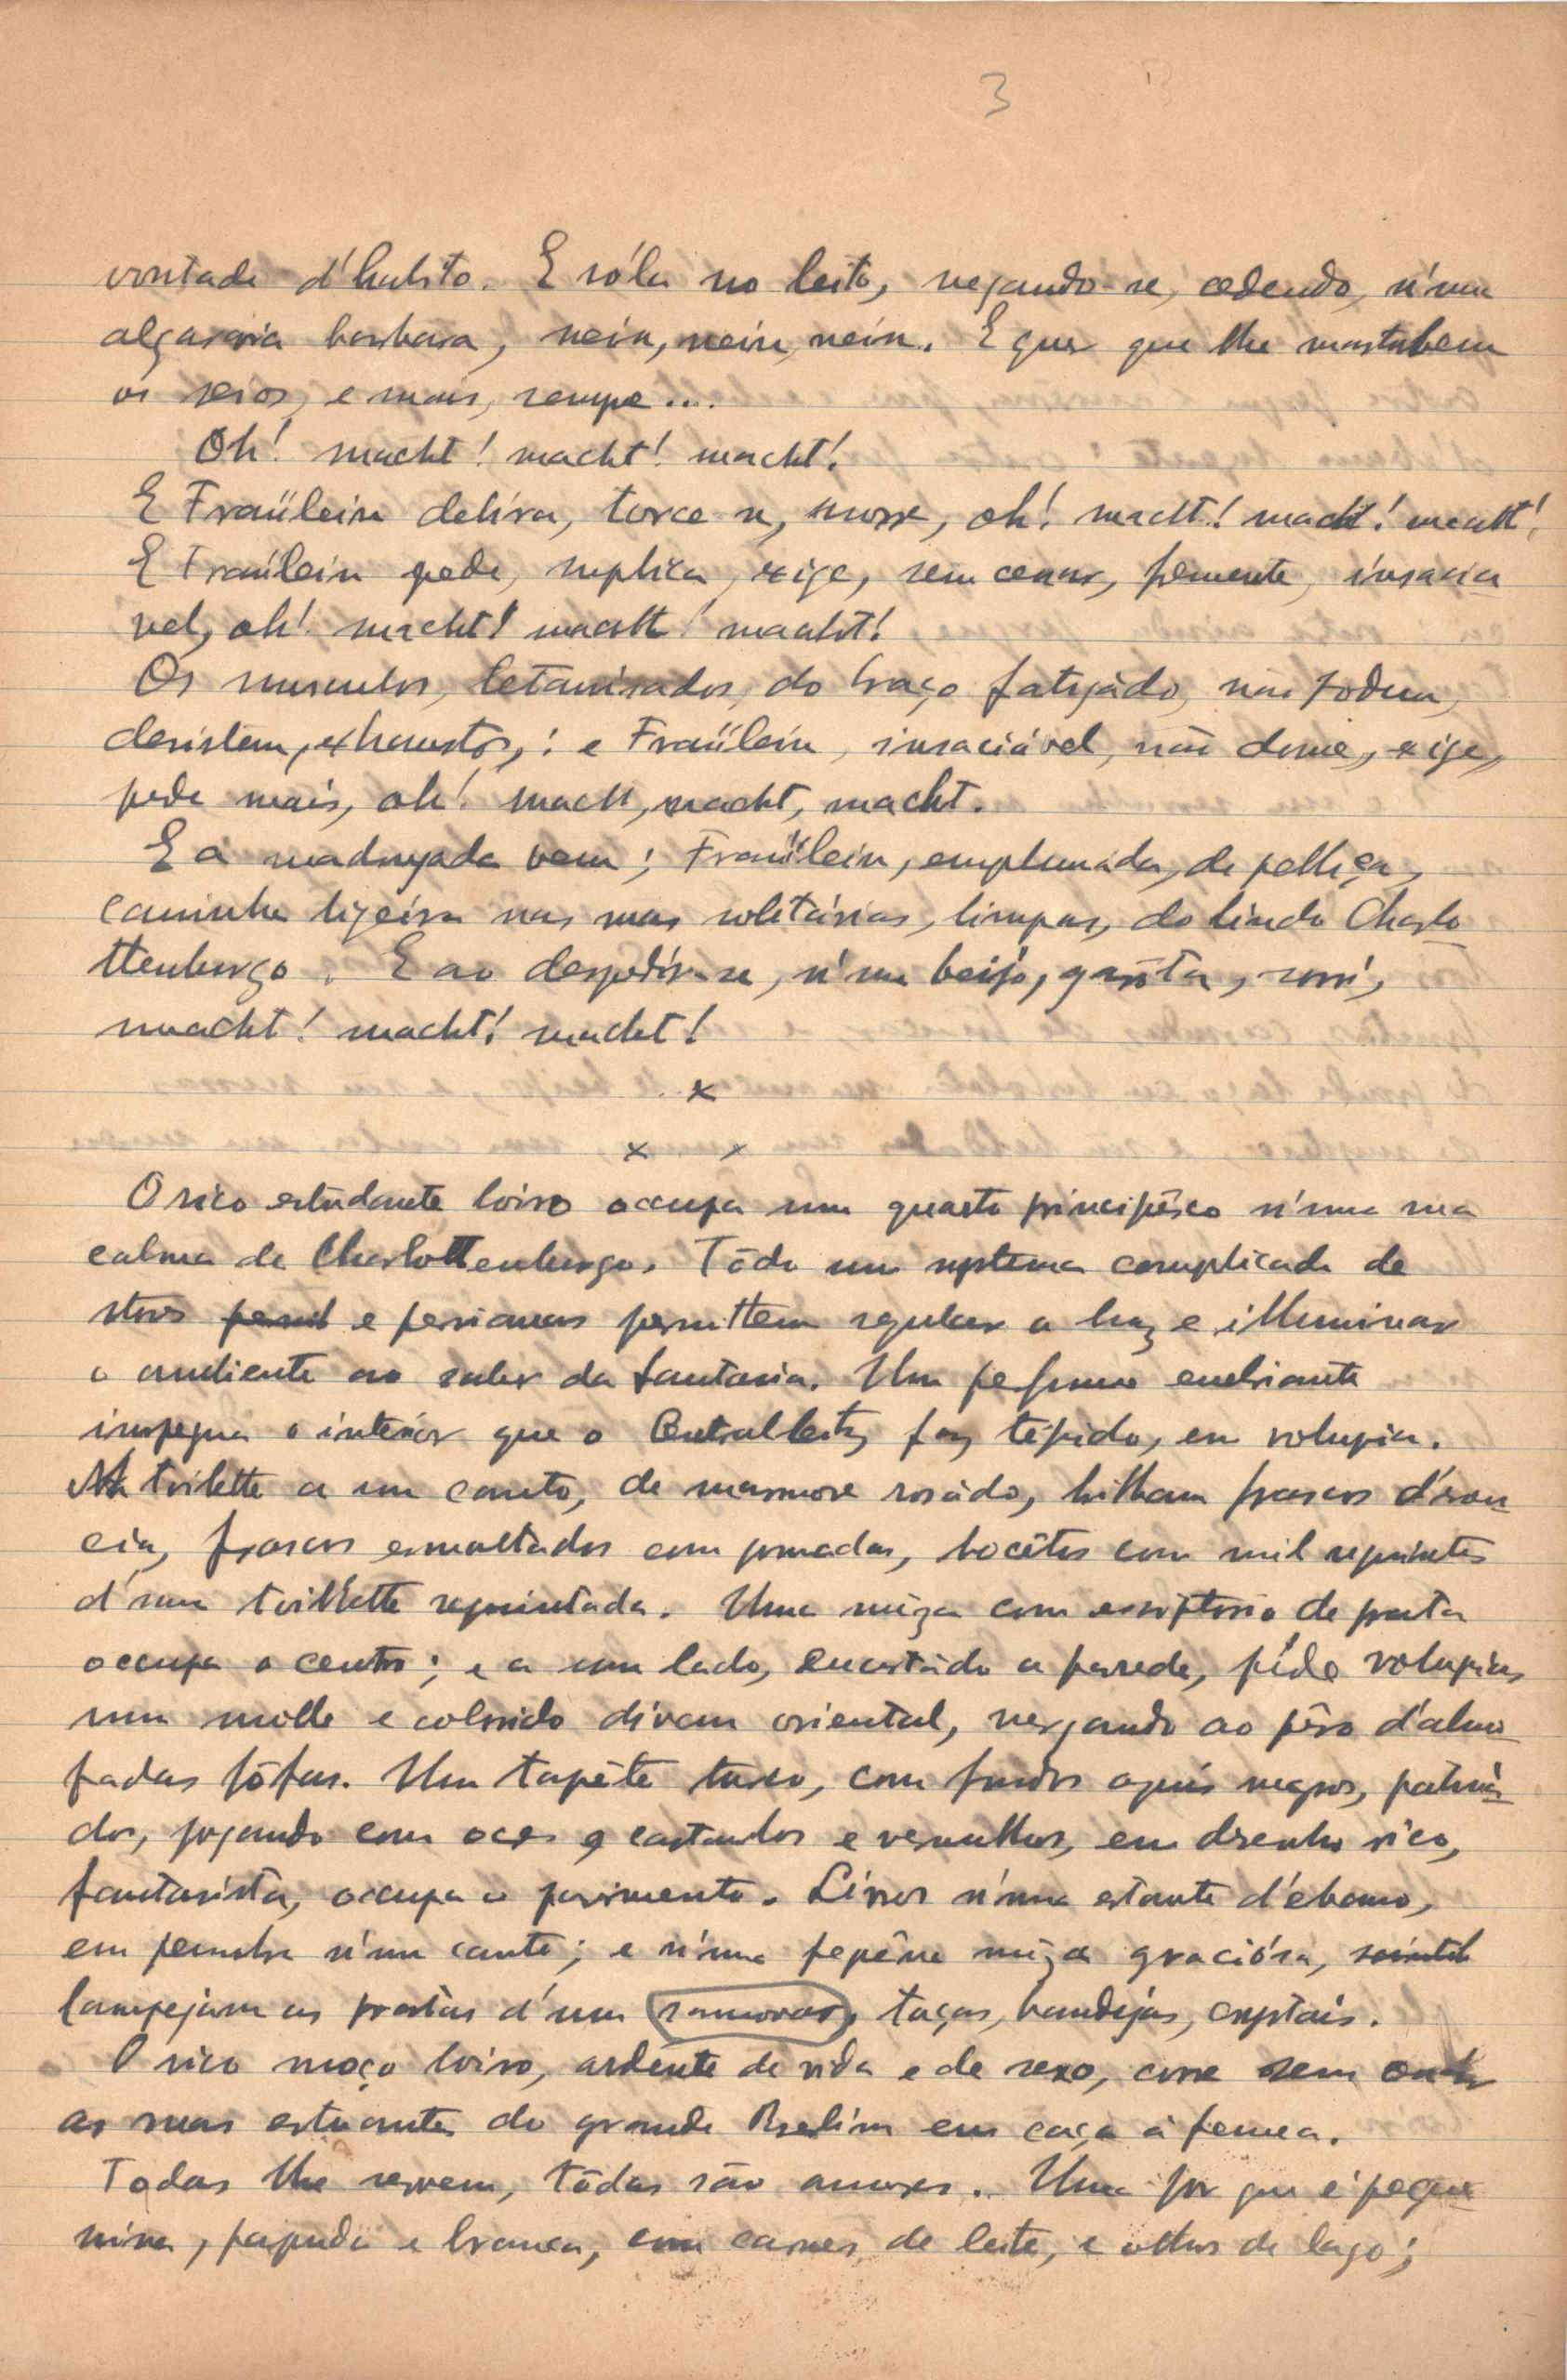 3
vontade d'habito. E róla no leito, negando-se, cedendo, n'uma
algaravia barbara, nein, nein, nein. E quer que lhe masturbem
os seios, e mais, sempre....
Oh! macht! macht! macht!
E Fraülein delira, torce se, morre, oh! macht! macht! macht!
E Fraülein pede, suplica, exige, sem cessar, fremente, insacia
vel, oh! macht! macht! macht!
Os musculos, tetanisados, do braço fatigádo, não podem,
desistem, exhaustos,: e Fraülein, insaciável, não dorme, exige,
pede mais, oh! macht, macht, macht.
E a madrugada vem; Fraülein, emplumada, de pelliça,
caminha ligeira nas ruas solitárias, limpas, do lindo Charlo
ttenburgo. E ao despedir-se, n'um beijo, garôta, sorri,
macht! macht! macht!
x
x x
O rico estudante loiro occupa um quarto principêsco n'uma rua
calma de Charlottenburgo. Tôdo um systema complicado de
stors e persianas permittem regular a luz e illuminar
o ambiente ao sabor da fantasia. Um perfume enebriante
impregna o interior que o Centralheitz faz tépido, em volupia.
Na toilette a um canto, de marmore rosádo, brilham frascos d'essen
cia, frascos esmaltados com pomadas, bocêtes com mil requintes
d'uma toillette requintada. Uma mêza com escriptorio de prata
occupa o centro; e a um lado, encostádo a parede, péde volupias
um molle e colorido divam oriental, vergando ao pêso d'almo
fadas fôfas. Um tapête turco, com fundos azuis negros, patiná
dos, jogando com ocres e castanhos e vermelhos, em desenho rico,
fantasista, occupa o pavimento. Livros n'uma estante d'ebano,
em penumbra n'um canto; e n'uma peqêna mêza graciósa,
lampejam as pratas d'um samovar, taças, bandejas, cristais.
O rico moço loiro, ardente de vida e de sexo, corre sem
as ruas estuantes do grande Berlim em caça á femea.
Todas lhe servem, tôdas são amores. Uma por que é peque
nina, papuda e branca, com carnes de leite, e olhos de lago;